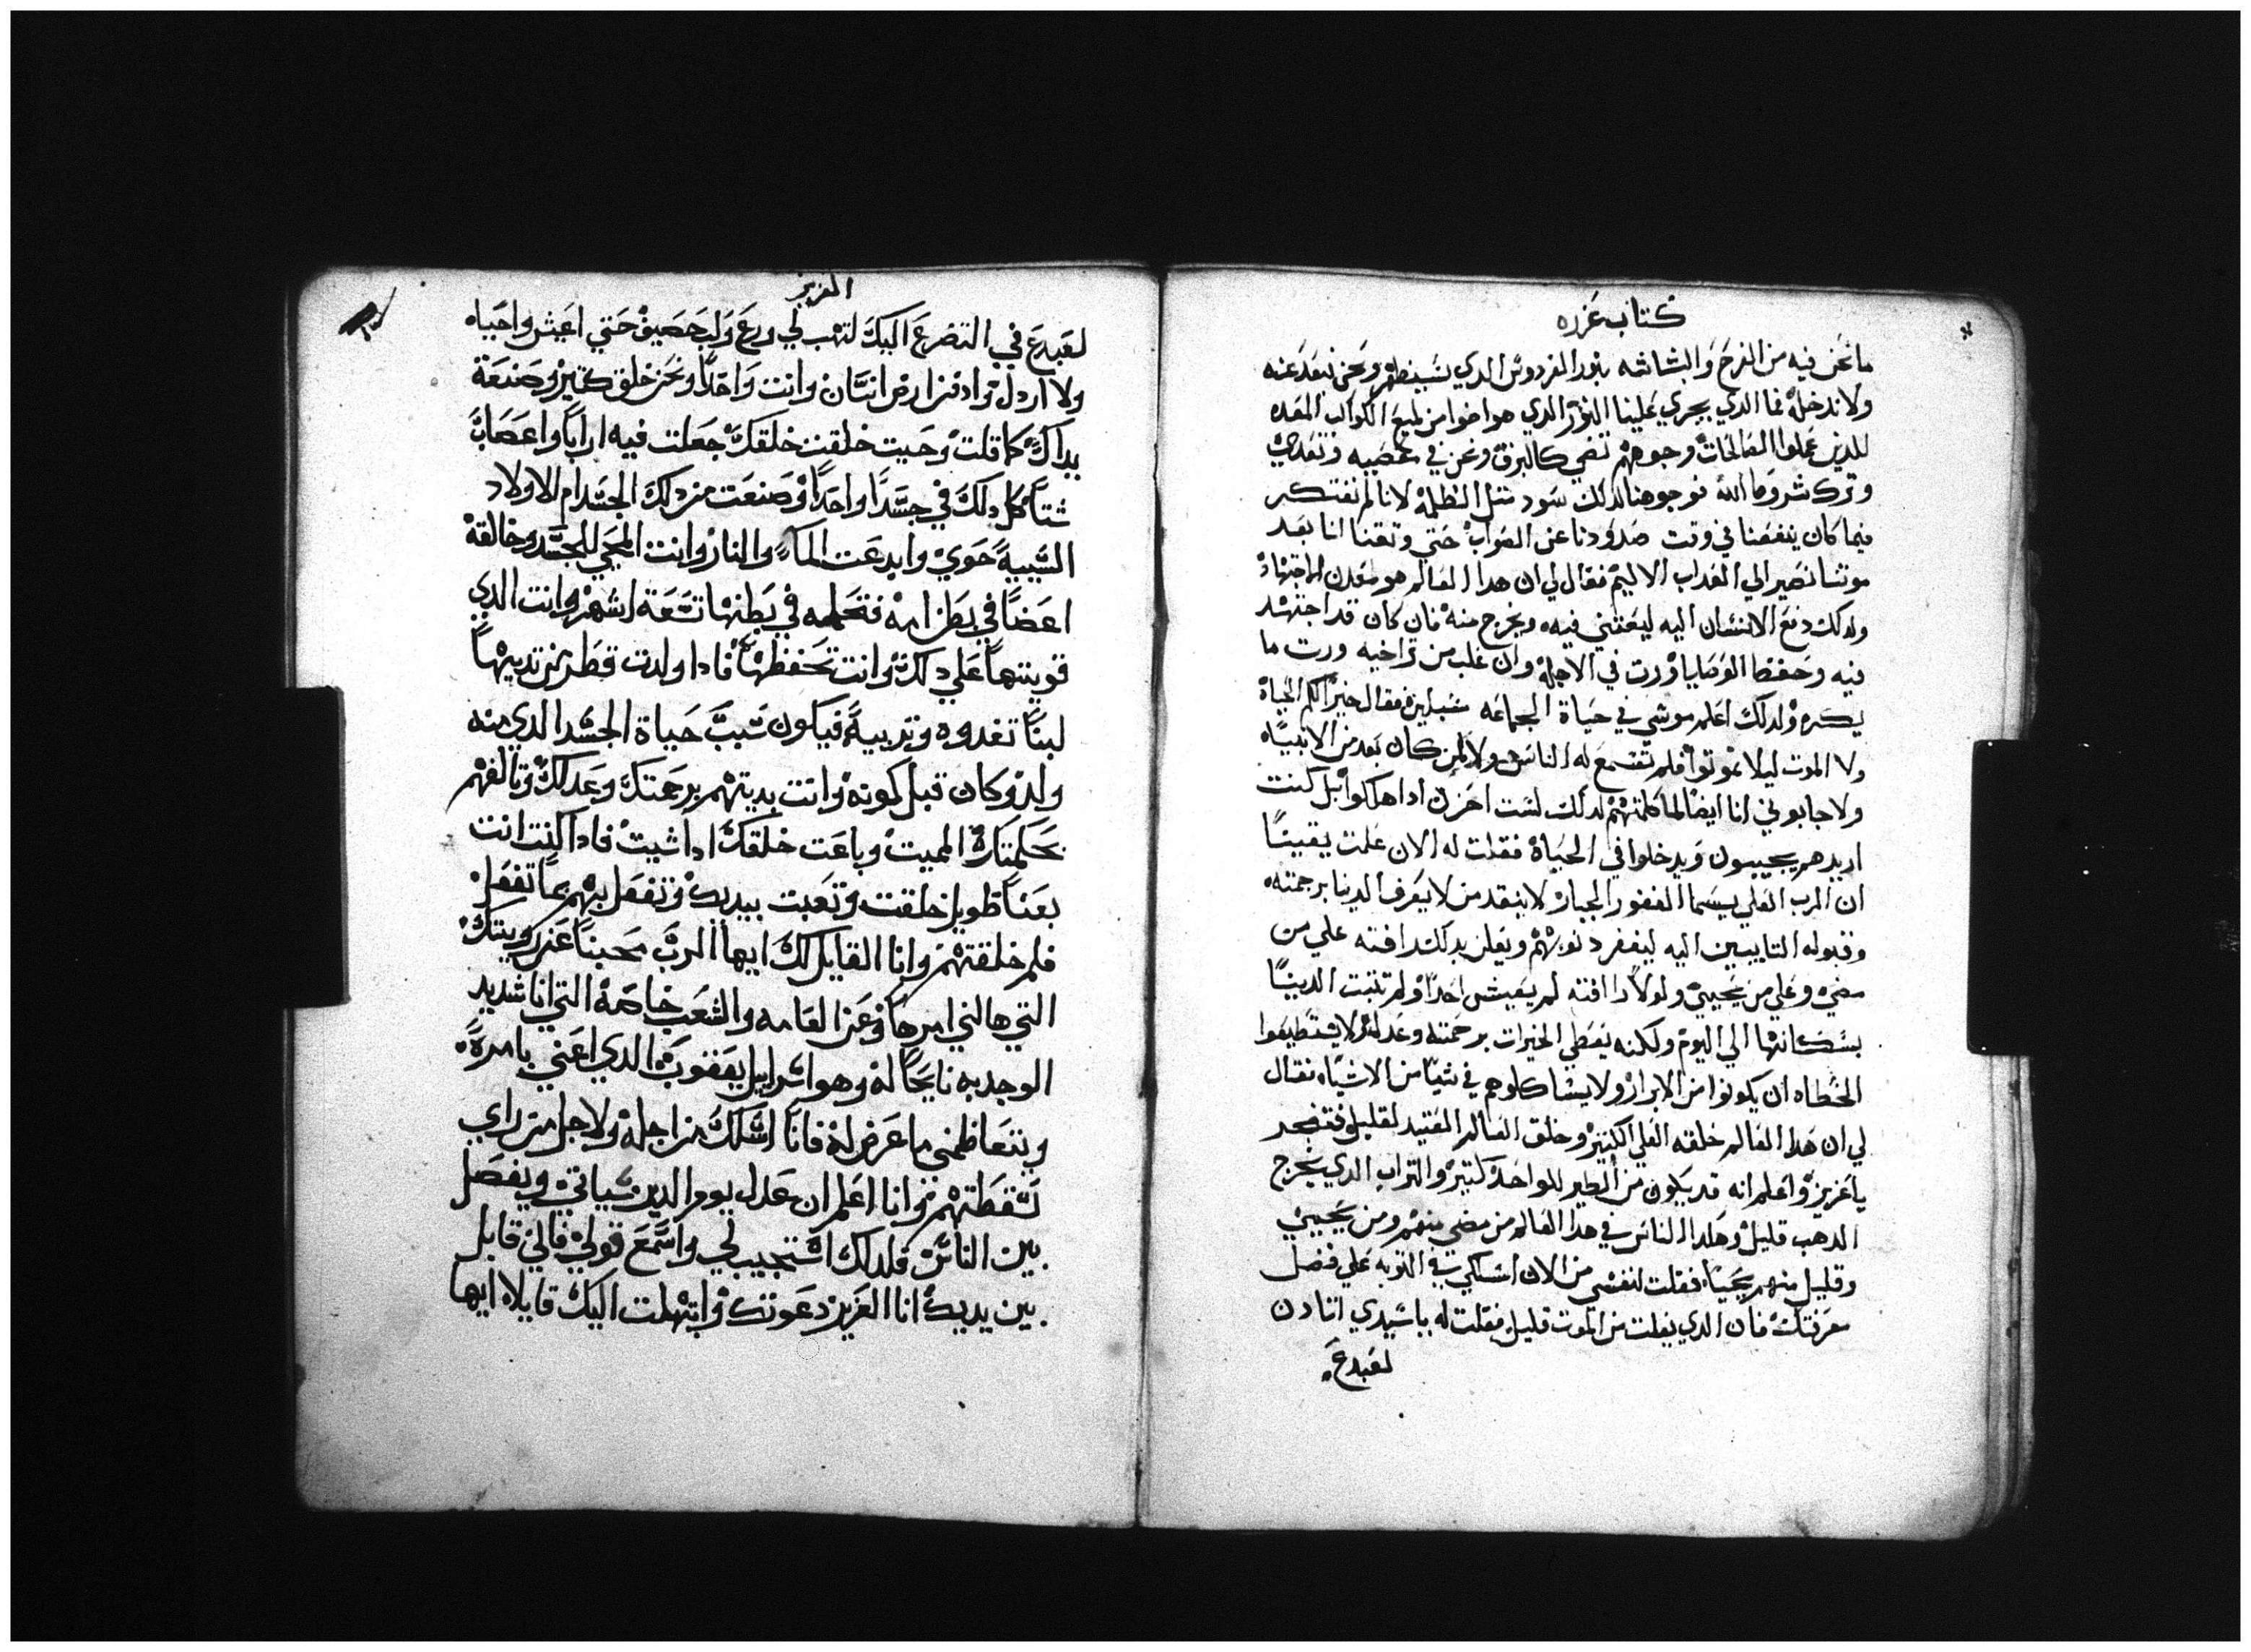 كتاب عزره
ما نحن فيه من الفرح والبشاشه بنور الفردوس الدي سيظهر ونحن نبعد عنه
ولا ندخله فما الدي يجري علينا النور الدي هو اضوا من لميع الكواكب المعده
للدين عملوا الصالحات وجوههم تضي كالبرق ونحن في
وترك شروط الله فوجوهنا لدلك سود متل الظلمه لانا لم نفتكر
فيما كان ينفعنا في وقت صدودنا عن الصواب حتي وتقنا انا بعد
موتنا نصير الي العداب الاليم فقال لي ان هدا العالم هو معدن الاجتهاد
ولدلك دفع الانسان اليه ليعتني فيه ويخرج منه فان كان قد اجتهد
فيه وحفظ الوصايا ورت في الاجله وان غلب من تراخيه ورت ما
يكره ولدلك اعلم موسي في حياة الجماعه سبيلين فقال خيرا لكم الحياة
ولا الموت ليلا تموتوا فلم تسمع له الناس ولا لمن كان بعد من الانبياء
ولا جابوني انا ايضا لما كلمتهم لدلك لست احزن ادا هلكوا بل كنت
اريدهم يجيبون ويدخلوا في الحياة فقلت له الان علمت يقينا
ان الرب العلي يسما الغفور الجبار لا ينقد من لا يعرف الدينا برحمته
وقبوله التايبين اليه ليغفر دنوبهم ويعلن بدلك رافته علي من
مضي وعلي من يجيي ولولا رافته لم يعيش احدا ولم تتبت الدينا
بسكانها الي اليوم ولكنه يعطي الخيرات برحمته وعدله ولا يستطيعوا
الخطاه ان يكونوا من الابرار ولا يشاكلوهم في شيا من الاشياء فقال
لي ان هدا العالم خلقه العلي لكتير وخلق العالم العتيد لقليل
يا عزيز واعلم انه قد يكون من الطير للواحد كتير والتراب الدي يخرج
الدهب قليل وهكدا الناس في هدا العالم من مضي منهم ومن يجيي
وقليل منهم يحيا فقلت لنفسي من الان اسلكي في التوبه علي فضل
معرفتك فان الدي يفلت من الموت قليل فقلت له يا سيدي اتادن
لعبدع
العزيز
لعبدع في التضرع اليك لتهب لي ورع ولب حصيف حتي اعيش واحياه
ولا اردل وادفن ارض انسان وانت واحدا ونحن خلق كتير وصنعة
يداك كما قلت وحيت خلقت خلقك جعلت فيه ارابا واعصاب
شتا كل دلك في جسدا واحدا وصنعت من دلك الجسد ام الاولاد
السبية حوي وابدعت الماء والنار وانت المحي للجسد وخالقه
اعضا في بطن امه فتحمله في بطنها تسعة اشهر وانت الدي
قويتها علي دلك وانت تحفظها فادا ولدت قطر من تدييها
لبنا تغدوه وتربيه فيكون سبب حياة الجسد الدي منه
ولد وكان قبل كونه وانت بديتهم برحمتك وعدلك وتالفهم
بحكمتك المميت وباعت خلقك ادا شيت فادا كنت انت
بعنا طويل خلقت وتعبت بيديك وتفعل بهم عما تفعل
فلم خلقتهم وانا القايل لك ايها الرب محبنا عن كويتك
التي هالني امرها وعن العامه والشعب خاصة التي انا شديد
الوجد به نايحا له وهو اسراييل يعقوب الدي اعني بامره
ويتعاظمني ما عرض له فانا اسلك من اجله ولاجل من راي
سقطتهم وانا اعلم ان عدل يوم الدين سياتي ويفصل
بين الناس فلدلك استجيب لي واسمع قولي فاني قايل
بين يديك انا العزيز دعوتك وابتهلت اليك قايلا ايها